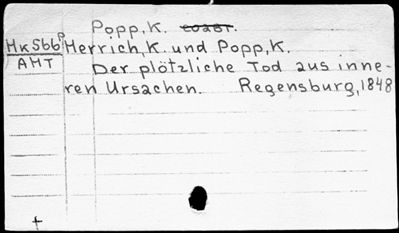 Popp, K.
Hk566p Herrich, K. und Popp, K.
AHT Der plötzliche Tod aus inne-
ren Ursachen. Regensburg, 1848